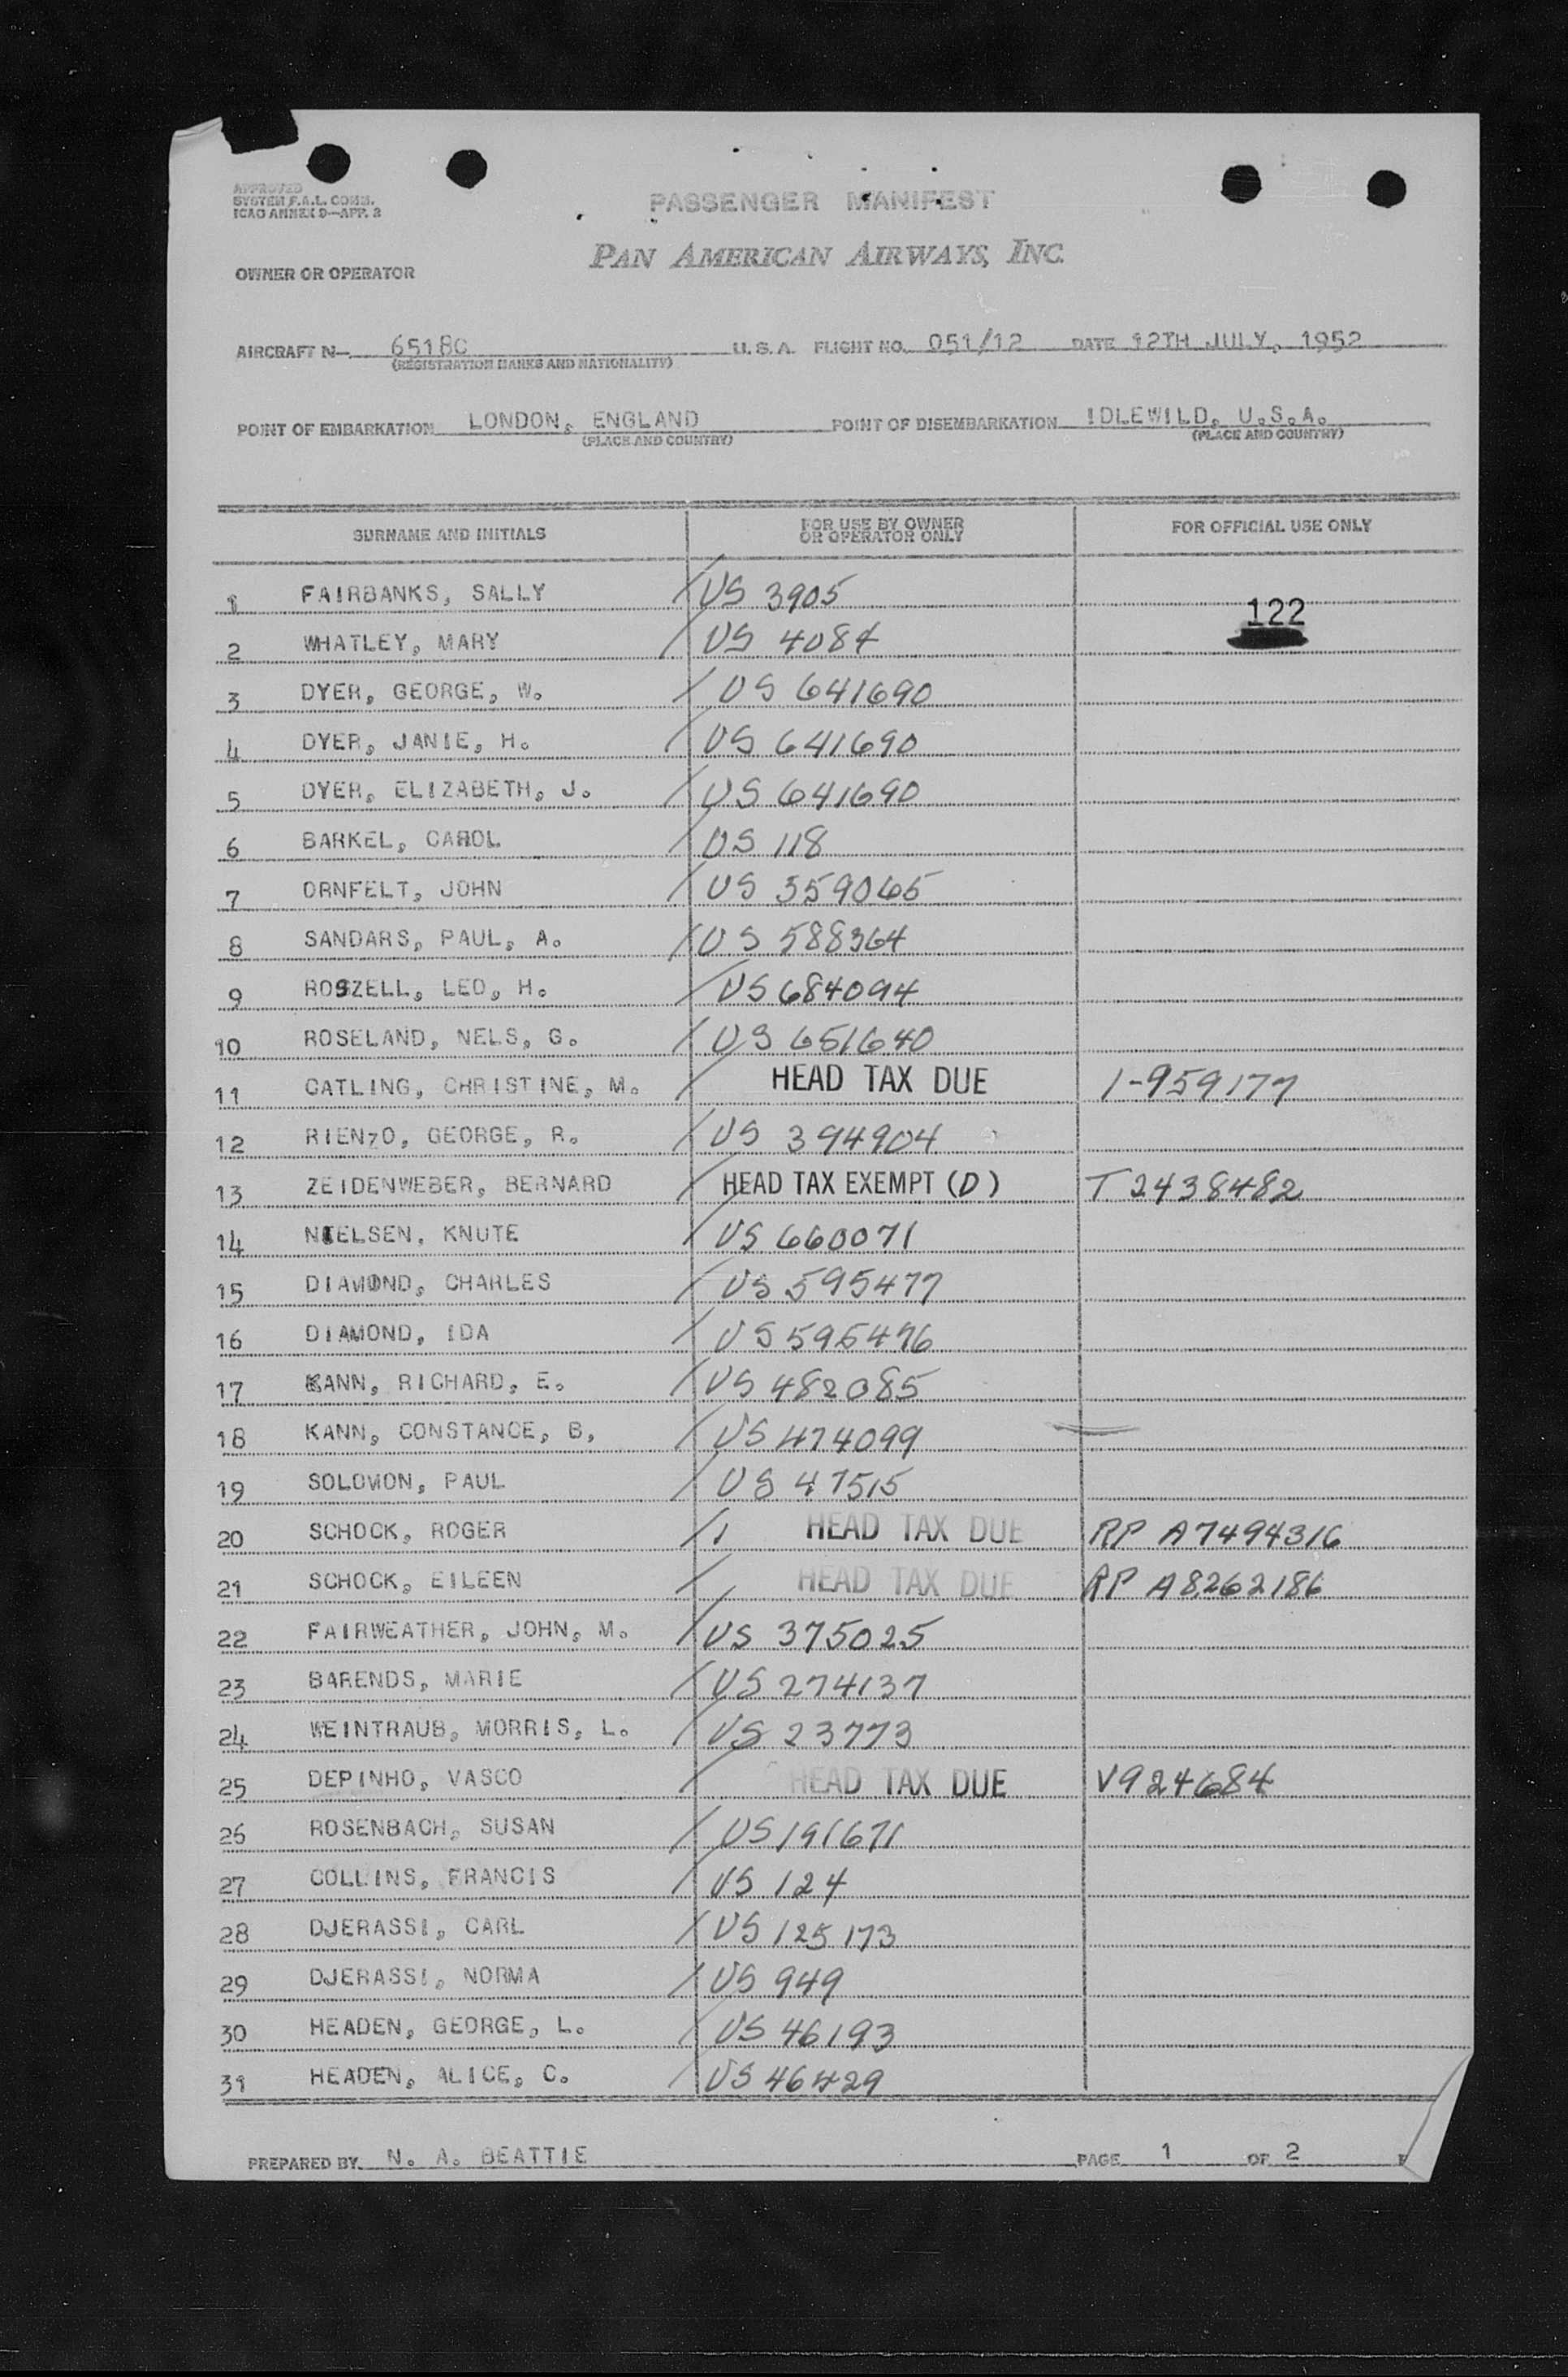 APPROVED
SYSTEM F.A.L. COMM.
ICAO ANNEX 9—APP. 2
PASSENGER MANIFEST
PAN AMERICAN AIRWAYS, INC.
OWNER OR OPERATOR
AIRCRAFT N— 6518C U.S.A. FLIGHT NO. 051/12 DATE 12TH JULY, 1952
(REGISTRATION MARKS AND NATIONALITY)
POINT OF EMBARKATION LONDON, ENGLAND POINT OF DISEMBARKATION IDLEWILD, U.S.A.
(PLACE AND COUNTRY) (PLACE AND COUNTRY)
SURNAME AND INITIALS FOR USE BY OWNER OR OPERATOR ONLY FOR OFFICIAL USE ONLY
1 FAIRBANKS, SALLY / US 3905
122
2 WHATLEY, MARY / US 4084
3 DYER, GEORGE, W. / US 641690
4 DYER, JANIE, H. / US 641690
5 DYER, ELIZABETH, J. / US 641690
6 BARKEL, CAROL / US 118
7 ORNFELT, JOHN / US 359065
8 SANDARS, PAUL, A. / US 588364
9 ROSZELL, LEO, H. / US 684094
10 ROSELAND, NELS, G. / US 651640
11 CATLING, CHRISTINE, M. / HEAD TAX DUE 1-959177
12 RIENZO, GEORGE, R. / US 394904
13 ZEIDENWEBER, BERNARD / HEAD TAX EXEMPT (D) T2438482
14 NIELSEN, KNUTE / US 660071
15 DIAMOND, CHARLES / US 595477
16 DIAMOND, IDA / US 595476
17 KANN, RICHARD, E. / US 482085
18 KANN, CONSTANCE, B, / US 474099
19 SOLOMON, PAUL / US 47515
20 SCHOCK, ROGER / HEAD TAX DUE RP A7494316
21 SCHOCK, EILEEN / HEAD TAX DUE RP A8262186
22 FAIRWEATHER, JOHN, M. / US 375025
23 BARENDS, MARIE / US 274137
24 WEINTRAUB, MORRIS, L. / US 23773
25 DEPINHO, VASCO / HEAD TAX DUE V924684
26 ROSENBACH, SUSAN / US 191671
27 COLLINS, FRANCIS / US 124
28 DJERASSI, CARL / US 125173
29 DJERASSI, NORMA / US 949
30 HEADEN, GEORGE, L. / US 46193
31 HEADEN, ALICE, C. / US 46429
PREPARED BY N. A. BEATTIE PAGE 1 OF 2